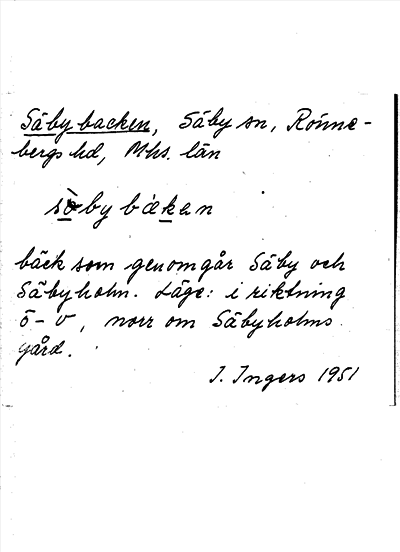 Säbybacken, Säby sn, Rönne-
bergs hd, Mhs. län
by bäken
bäck som genomgår Säby och
Säbyholm. Läge: i riktning
ö-v, norr om Säbyholms
gård.
I. Ingers 1951